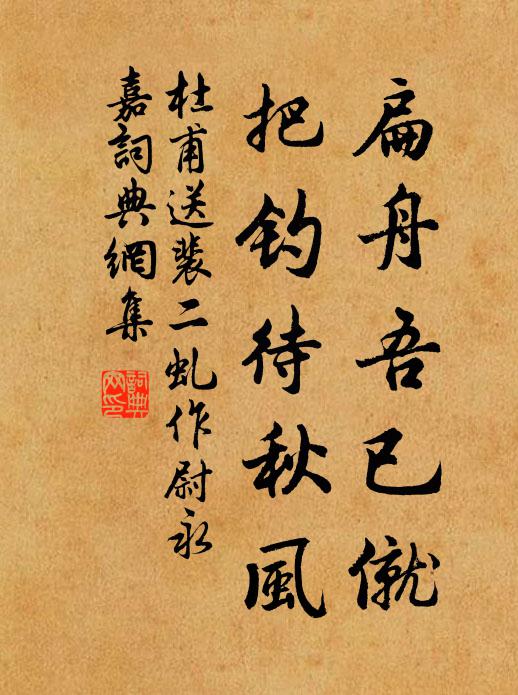 扁舟吾已僦
把钓待秋風
杜甫送裴二虬作尉永
嘉詞典網集
詞典
网印